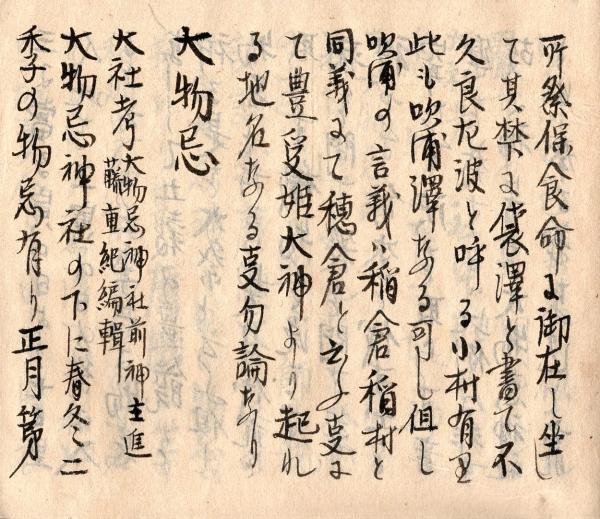 所祭保食命に御在し坐し
て其梺に袋澤と書て不
久良尨波と呼る小村有里
此も吹浦澤なる可し但し
吹浦の言義ハ稲倉稲村と
同義にて穂倉と云ふ支に
て豊受姫大神より起れ
る地名なる支勿論なり
大物忌
大社考大物忌神社前神主進
藤重紀編輯
大物忌神社の下に春冬二
季の物忌有り正月第